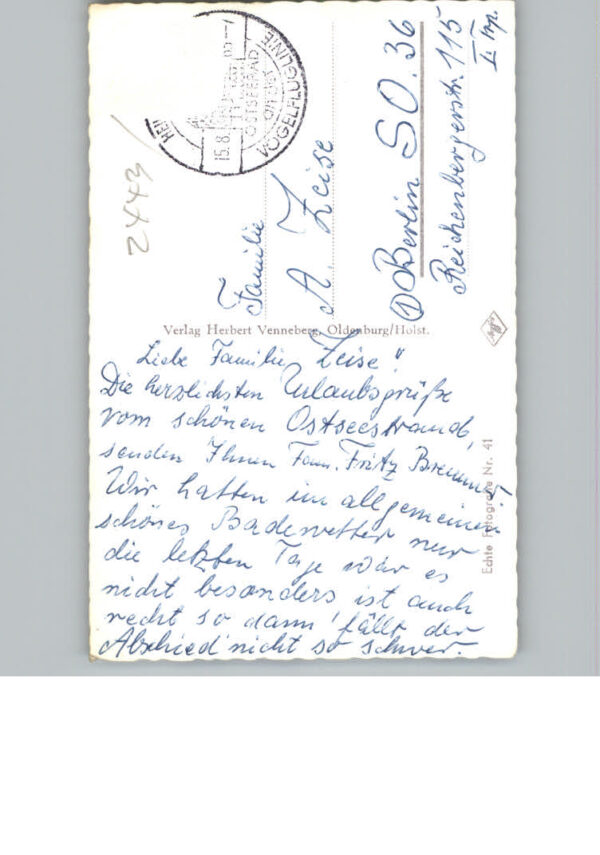 15.8.
OSTSEEBAD
VOGELFLUGLINIE
2443/
Familie
A. Zeise
① Berlin SO. 36
Reichenbergerstr. 115
II Trp.
Verlag Herbert Venneberg, Oldenburg/Holst.
Liebe Familie Zeise!
Die herzlichsten Urlaubsgrüße
vom schönen Ostseestrand,
senden Ihnen Fam. Fritz
Wir hatten im allgemeinen
schönes Badewetter nur
die letzten Tage war es
nicht besonders ist auch
recht so dann fällt der
Abschied nicht so schwer.
Echte Fotografie Nr. 41